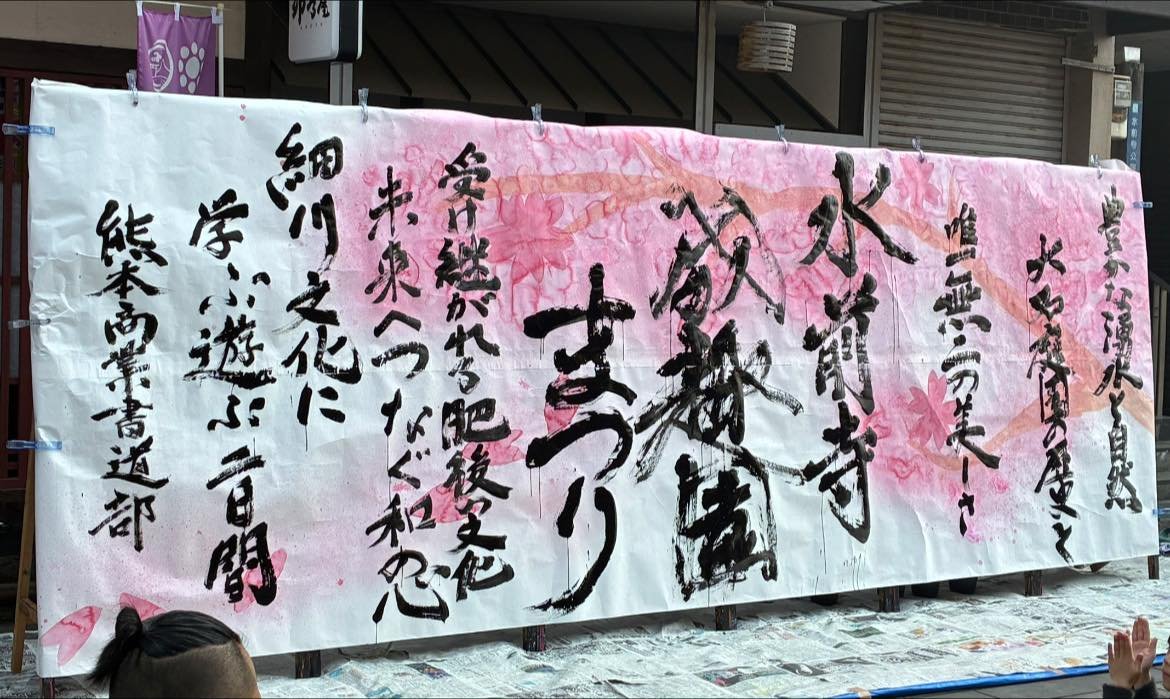 豊かな湧水と自然
大名庭園の歴史と
唯一無二の美しさ
水前寺
成趣園
まつり
受け継がれる肥後文化
未来へつなぐ和の心
細川文化に
学ぶ遊ぶ二日間
熊本商業書道部